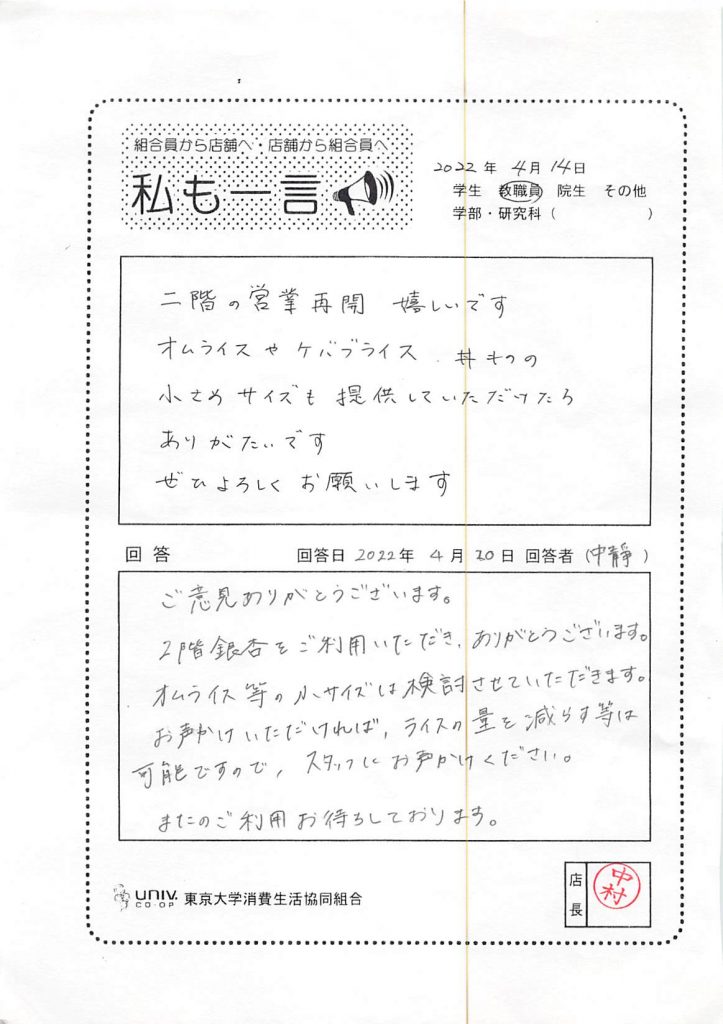 組合員から店舗へ・店舗から組合員へ
私も一言
2022年 4月 14日
学生 教職員 院生 その他
学部・研究科（ ）
二階の営業再開 嬉しいです
オムライスやケバブライス、丼ものの
小さめサイズも提供していただけたら
ありがたいです
ぜひよろしくお願いします
回答 回答日 2022年 4月 20日 回答者（中靜）
ご意見ありがとうございます。
2階銀杏をご利用いただき、ありがとうございます。
オムライス等の小サイズは検討させていただきます。
お声かけいただければ、ライスの量を減らす等は
可能ですので、スタッフにお声かけください。
またのご利用お待ちしております。
UNIV.
CO-OP
東京大学消費生活協同組合
店長
中村